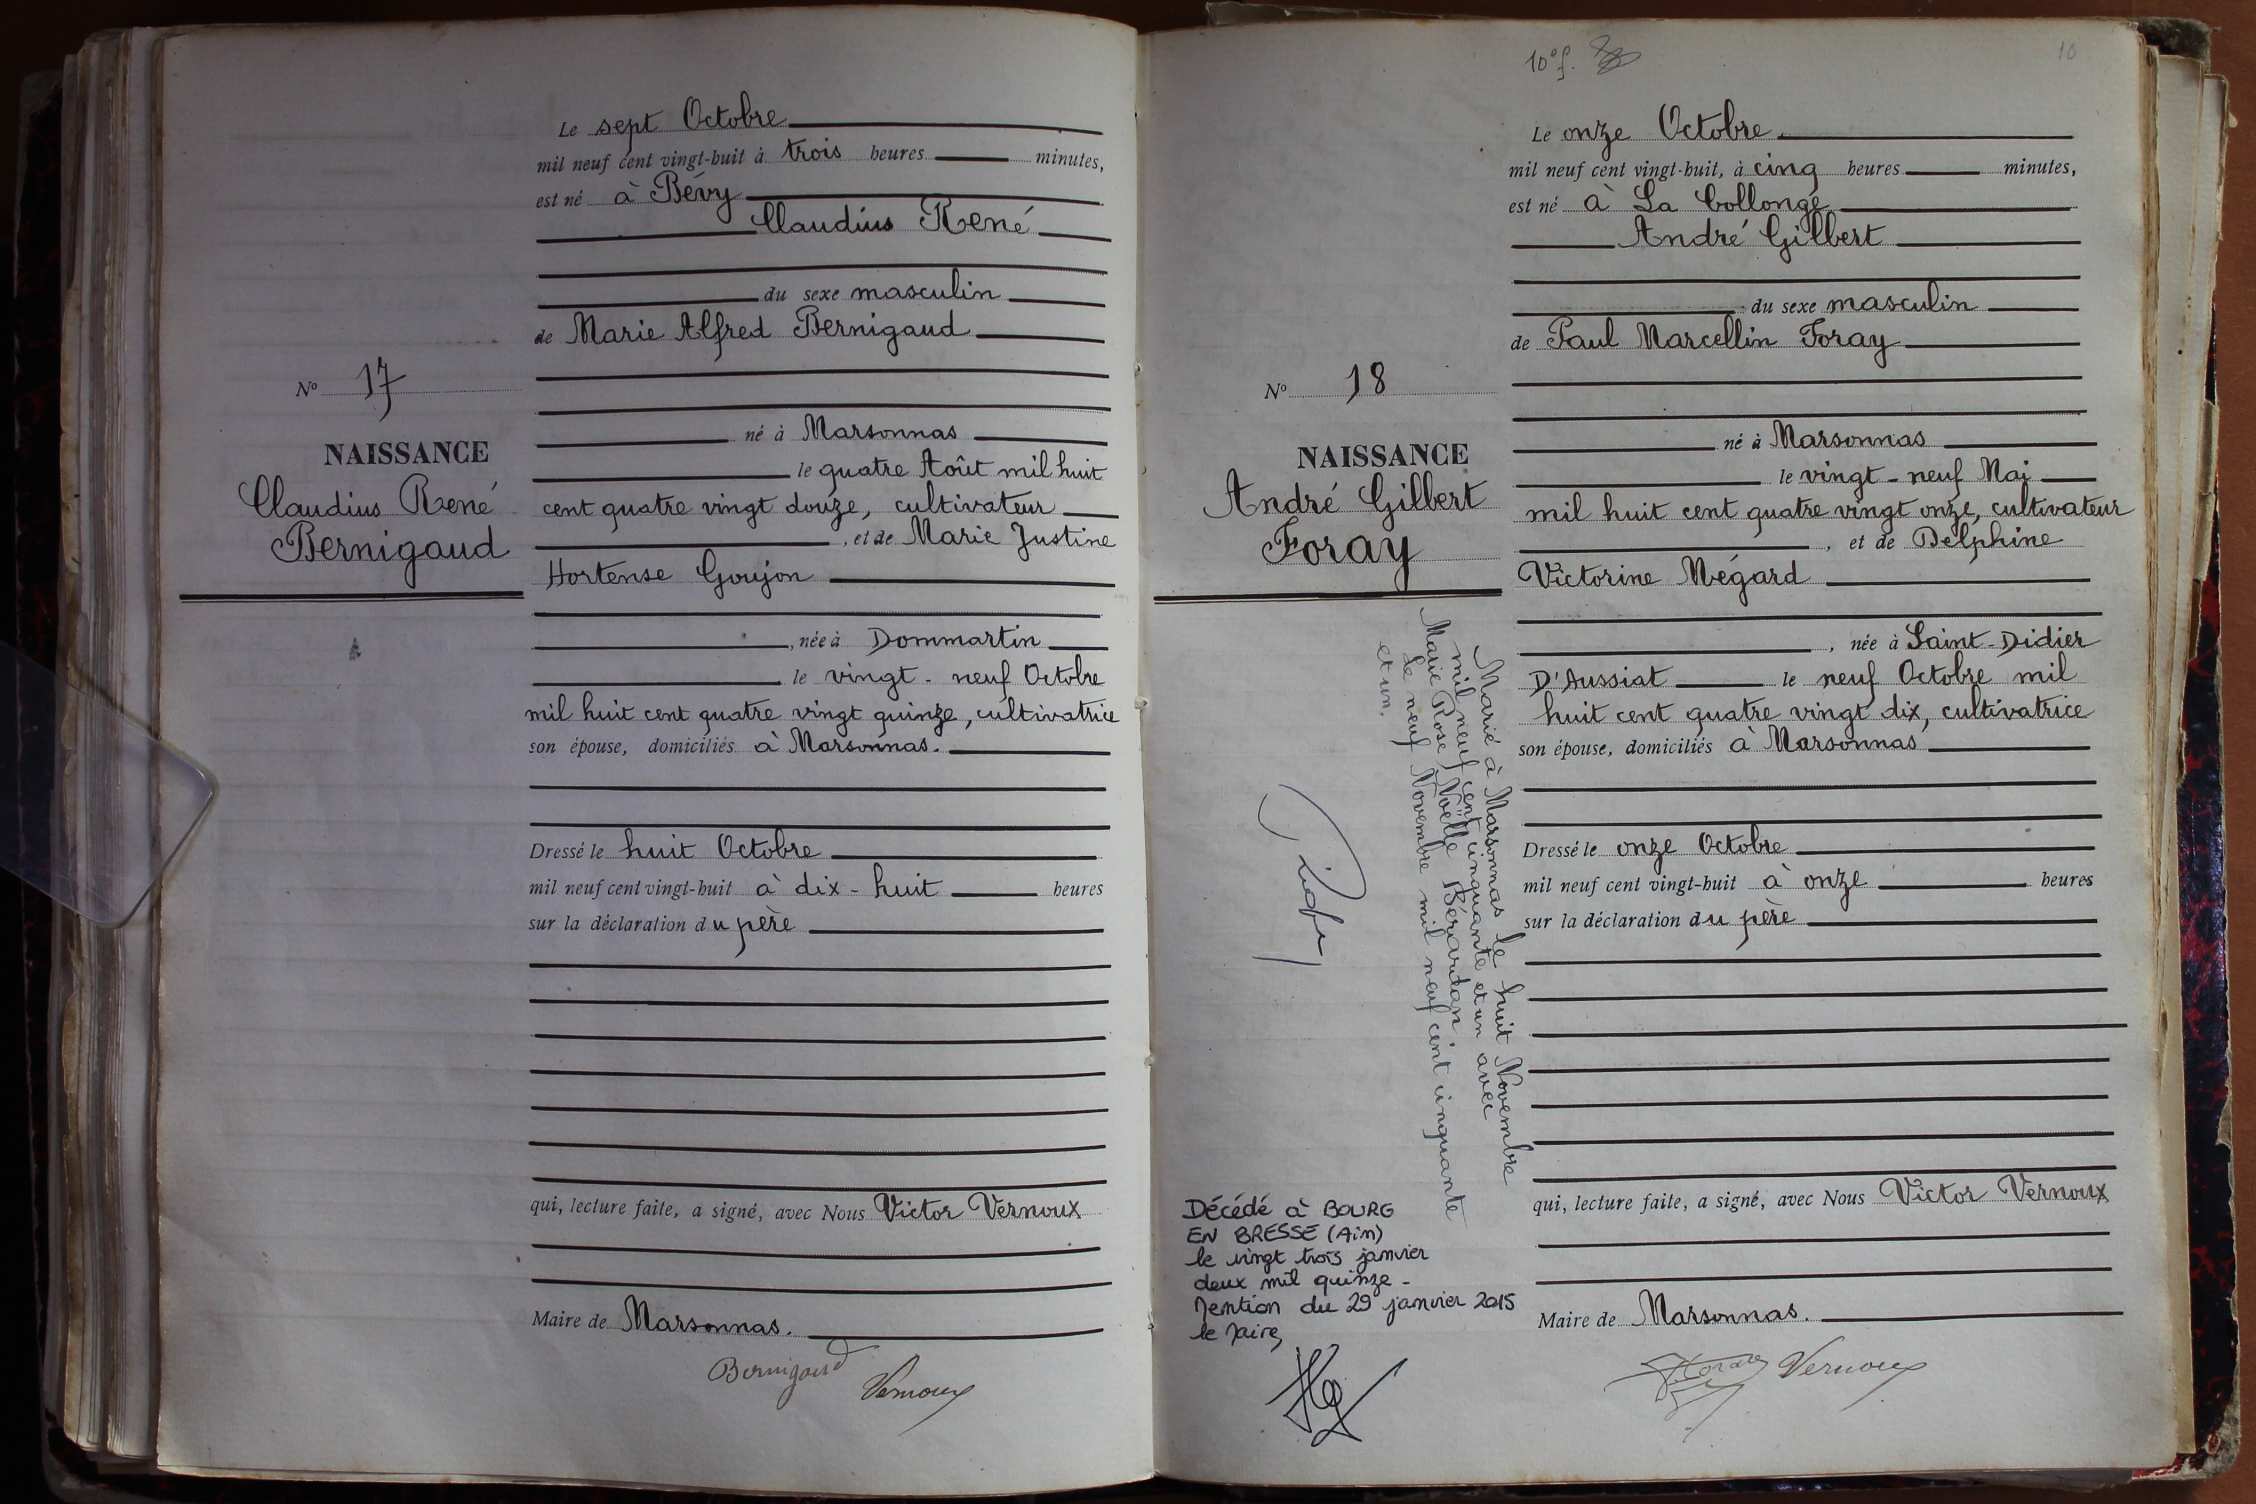 Le sept Octobre
mil neuf cent vingt-huit à trois heures minutes,
est né à Bévy
Claudius René
du sexe masculin
de Marie Alfred Bernigaud
N° 17
NAISSANCE
Claudius René
Bernigaud
né à Marsonnas
le quatre Août mil huit
cent quatre vingt douze, cultivateur
, et de Marie Justine
Hortense Goujon
, née à Dommartin
le vingt-neuf Octobre
mil huit cent quatre vingt quinze, cultivatrice
son épouse, domiciliés à Marsonnas.
Dressé le huit Octobre
mil neuf cent vingt-huit à dix-huit heures
sur la déclaration du père
qui, lecture faite, a signé, avec Nous Victor Vernoux
Maire de Marsonnas.
Bernigaud
Vernoux
10e f.
10
Le onze Octobre
mil neuf cent vingt-huit, à cinq heures minutes,
est né à La Collonge
André Gilbert
du sexe masculin
de Paul Marcellin Foray
N° 18
NAISSANCE
André Gilbert
Foray
né à Marsonnas
le vingt-neuf Mai
mil huit cent quatre vingt onze, cultivateur
, et de Delphine
Victorine Mégard
, née à Saint-Didier
D'Aussiat le neuf Octobre mil
huit cent quatre vingt dix, cultivatrice
son épouse, domiciliés à Marsonnas
Dressé le onze Octobre
mil neuf cent vingt-huit à onze heures
sur la déclaration du père
qui, lecture faite, a signé, avec Nous Victor Vernoux
Maire de Marsonnas.
Foray Vernoux
Marié à Marsonnas le huit Novembre
mil neuf cent cinquante et un avec
Marie Rose Noëlle Bérardan.
Le neuf Novembre mil neuf cent cinquante
et un.
Décédé à BOURG
EN BRESSE (Ain)
le vingt trois janvier
deux mil quinze -
Mention du 29 janvier 2015
le Maire,